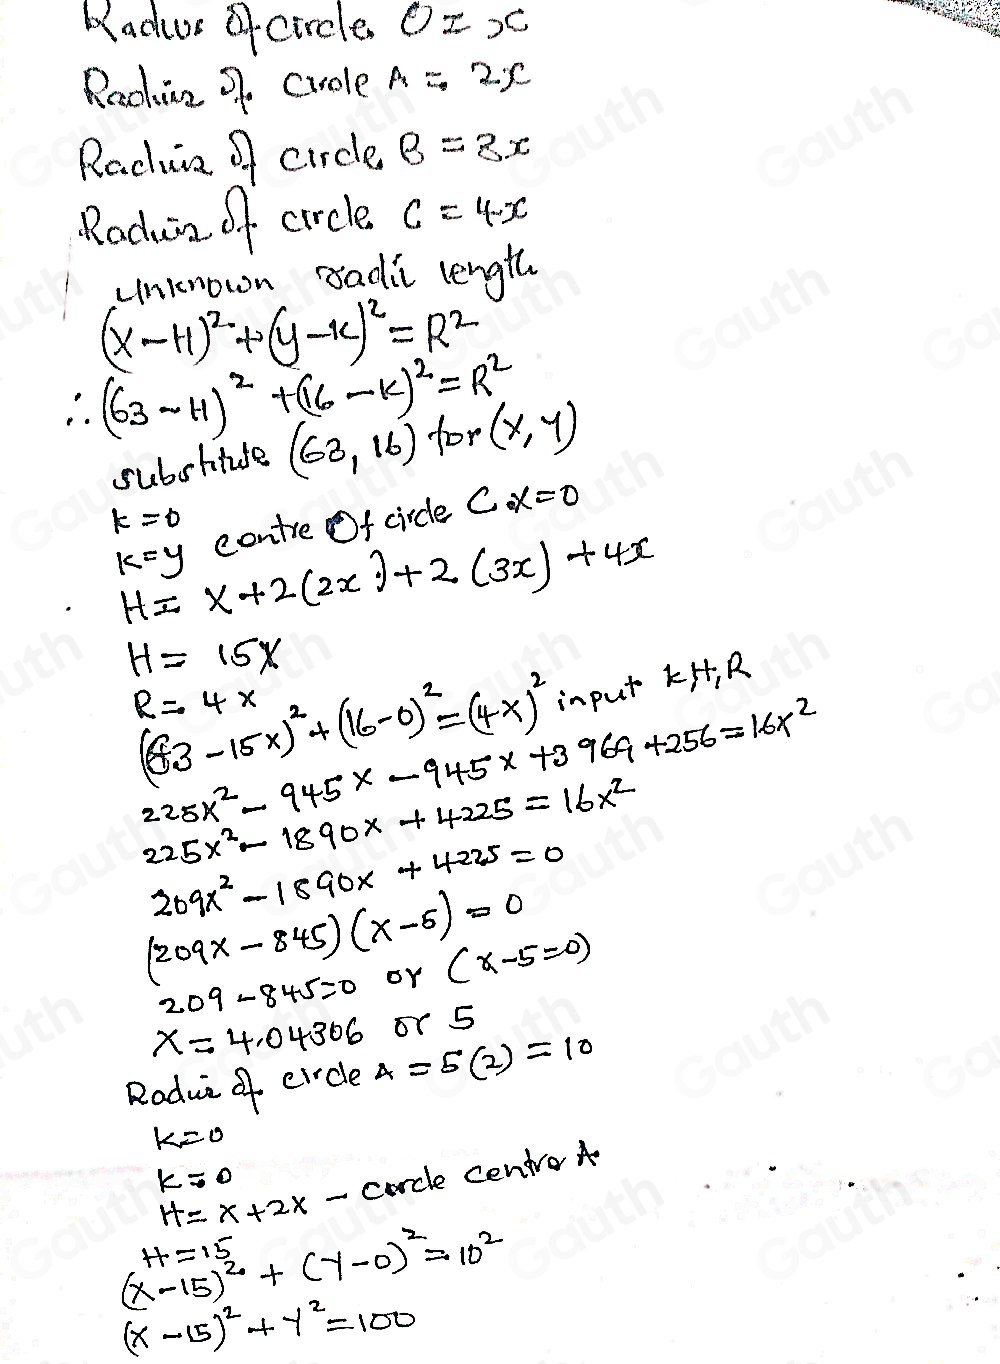 Radius of circle O = x
Radius of circle A = 2x
Radius of circle B = 3x
Radius of circle C = 4x
unknown radii length
(x-H)²+(y-k)²=R²
∴ (63-H)²+(16-k)²=R²
substitute (63, 16) for (x, y)
k=0
k=y centre Of circle C x=0
H= x+2(2x)+2(3x)+4x
H= 15x
R= 4x
(63-15x)²+(16-0)²=(4x)² input k,H,R
225x²-945x-945x+3969+256=16x²
225x²-1890x+4225=16x²
209x²-1890x+4225=0
(209x-845)(x-5)=0
209-845=0 or (x-5=0)
x=4.04306 or 5
Radius of circle A = 5(2) = 10
k=0
k=0
H= x+2x - circle centre A
H=15
(x-15)²+(y-0)²=10²
(x-15)²+y²=100